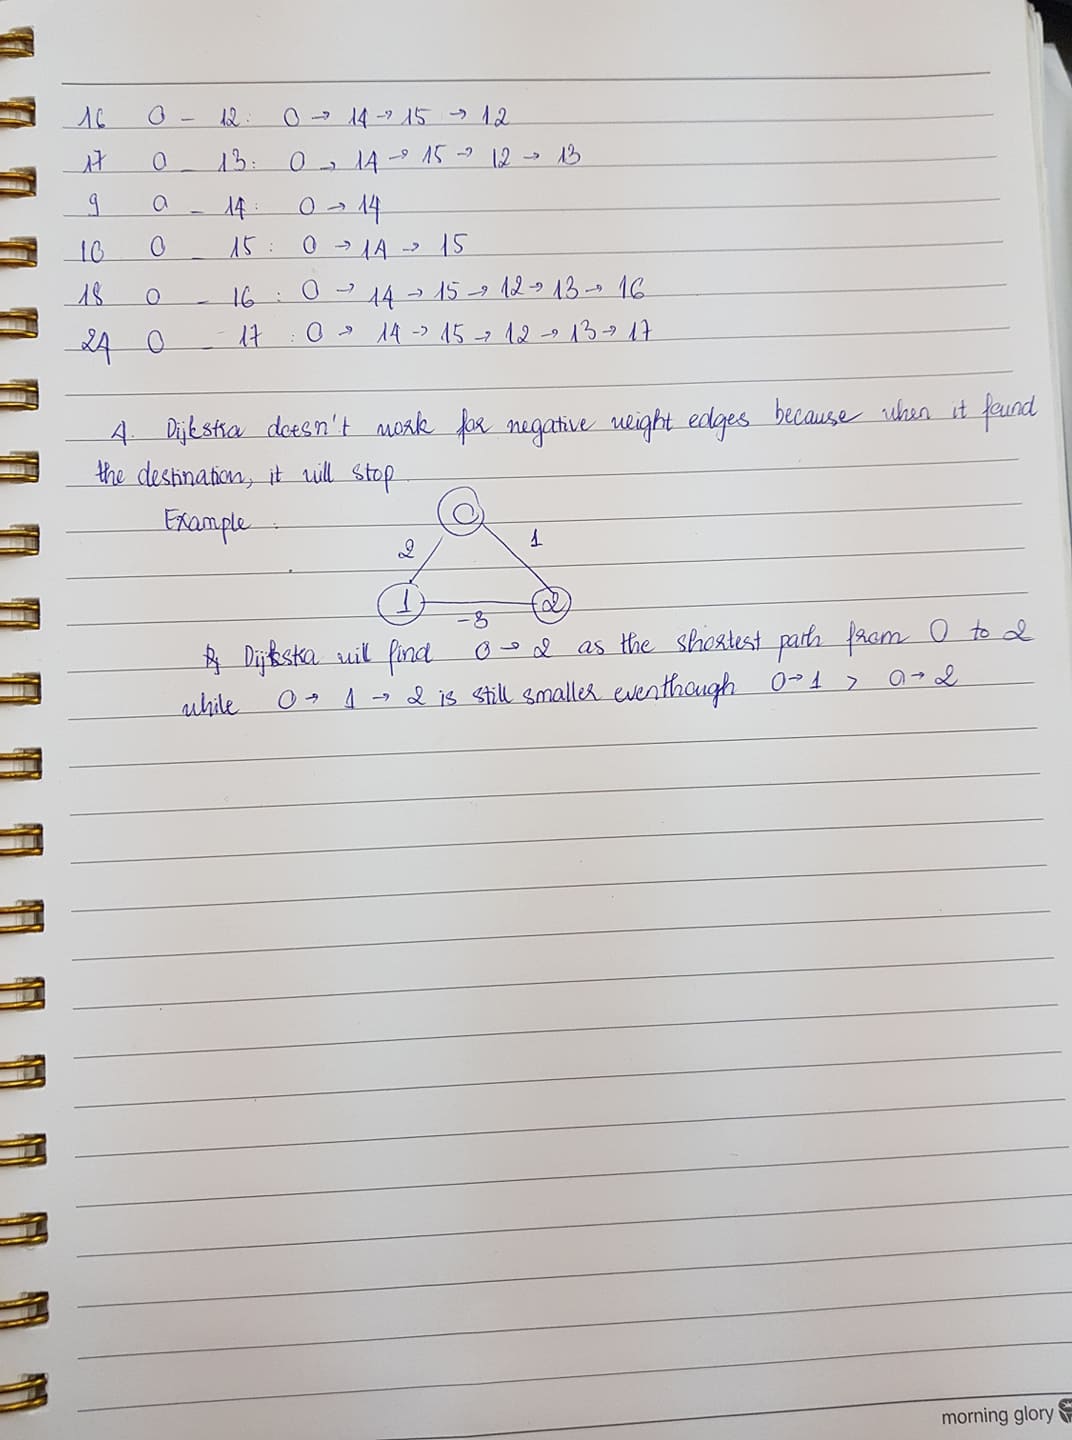 16 0 - 12: 0 → 14 → 15 → 12
17 0 - 13: 0 → 14 → 15 → 12 → 13
9 0 - 14: 0 → 14
10 0 - 15: 0 → 14 → 15
18 0 - 16: 0 → 14 → 15 → 12 → 13 → 16
24 0 - 17: 0 → 14 → 15 → 12 → 13 → 17
4. Dijkstra doesn't work for negative weight edges because when it found
the destination, it will stop.
Example:
0
2 1
1 2
-3
Dijkstra will find 0 → 2 as the shortest path from 0 to 2
while 0 → 1 → 2 is still smaller eventhough 0 → 1 > 0 → 2
morning glory